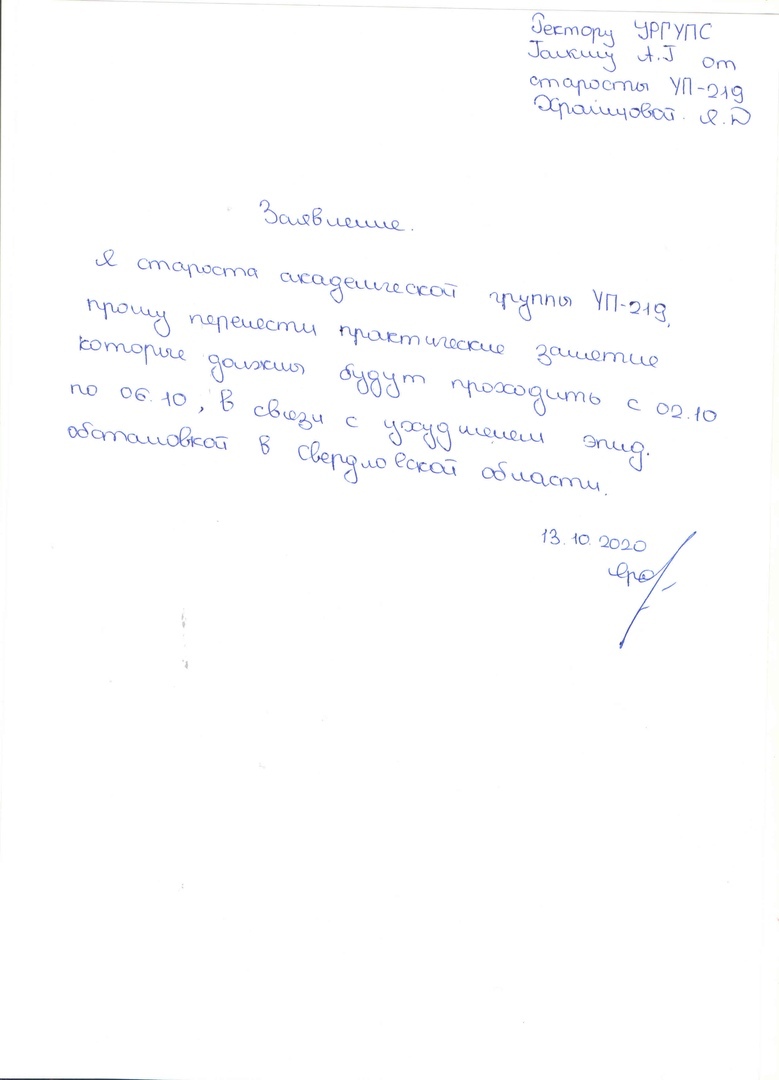 Ректору УРГУПС
Галкину А.Г от
старосты УП-219
Храмцовой. Я.Д
Заявление.
Я староста академической группы УП-219,
прошу перенести практические занятие
которые должны будут проходить с 02.10
по 06.10, в связи с ухудшением эпид.
обстановкой в Свердловской области.
13.10.2020